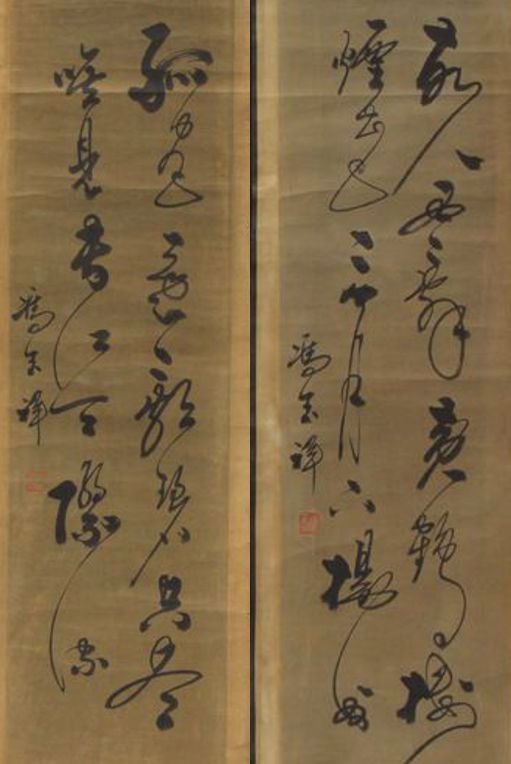 故人西辭黃鶴樓
煙花三月下揚州
馮玉祥
孤帆遠影碧空盡
唯見長江天際流
馮玉祥